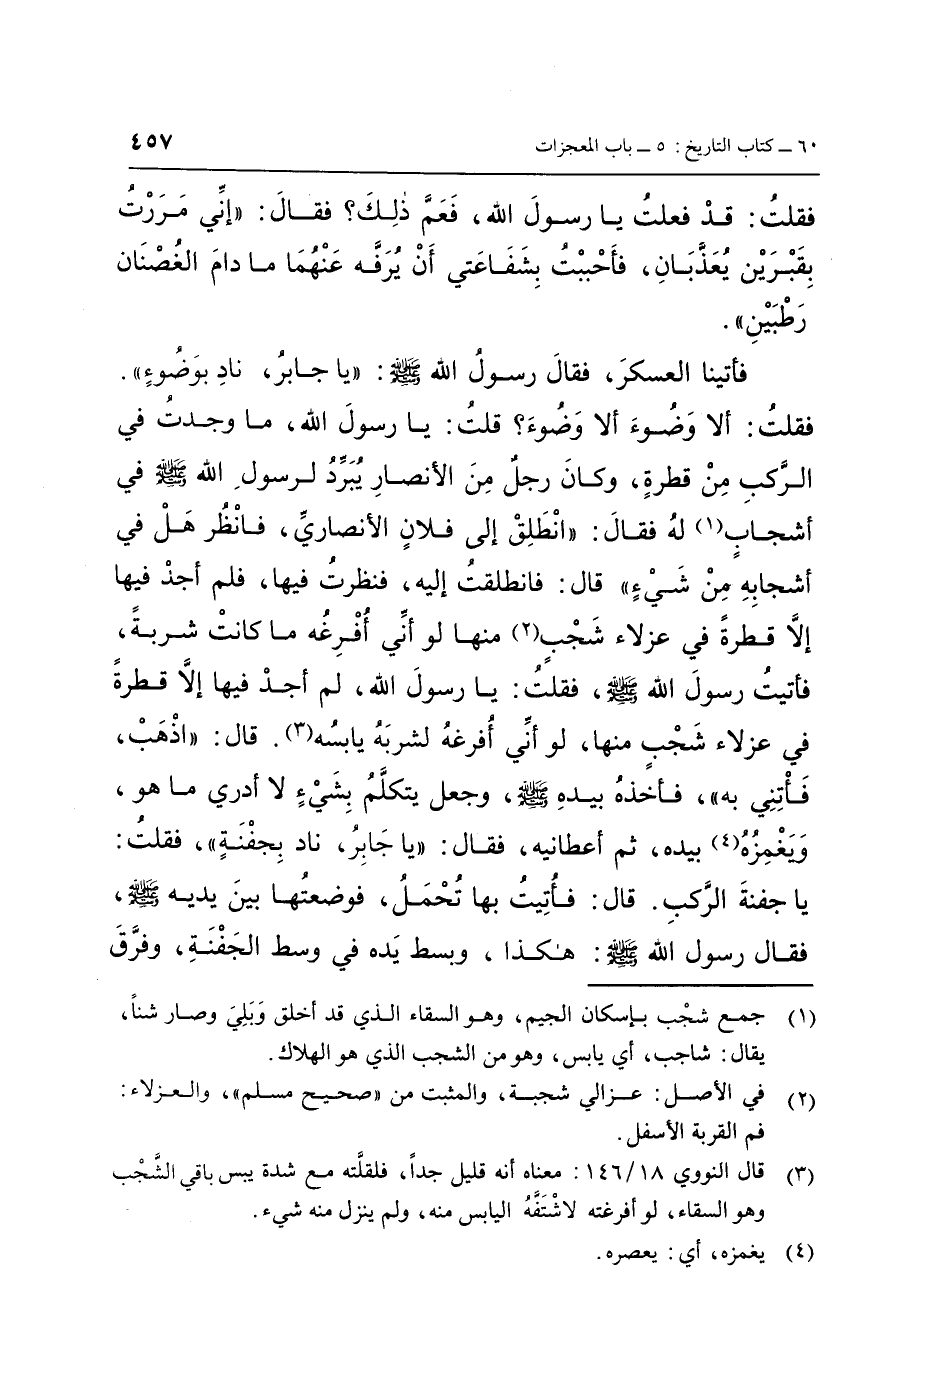 ٦٠ ـ كتاب التاريخ : ٥ ـ باب المعجزات ٤٥٧
فقلتُ : قـدْ فعلتُ يـا رسـولَ الله ، فَعَمَّ ذٰلِكَ؟ فقـالَ : «إنِّي مَـرَرْتُ
بِقَبْـرَيْنِ يُعَذَّبَـانِ ، فأَحْبَبْتُ بِشَفَـاعَتي أَنْ يُرَفَّـه عَنْهُمَا مـا دامَ الغُصْنَان
رَطْبَيْنِ» .
فأتينا العسكرَ، فقالَ رسـولُ الله ﷺ : «يا جـابرُ، نادِ بوَضُوءٍ» .
فقلتُ : ألا وَضُـوءَ ألا وَضُوءَ؟ قلتُ : يـا رسولَ الله ، مـا وجـدتُ في
الـرَّكبِ مِنْ قطرةٍ ، وكـانَ رجلٌ مِنَ الأنصـارِ يُبَرِّدُ لـرسولِ الله ﷺ في
أشجـابٍ(١) لهُ فقـالَ : «انْطَلِقْ إلى فـلانٍ الأنصاريِّ ، فـانْظُر هَلْ في
أشجابِهِ مِنْ شَـيْءٍ» قال : فانطلقتُ إليه ، فنظرتُ فيها ، فلم أجدْ فيها
إلَّا قـطرةً في عزلاء شَجْبٍ(٢) منهـا لو أنِّي أُفْـرِغُه مـا كانتْ شـربةً ،
فأتيتُ رسولَ الله ﷺ ، فقلتُ : يـا رسولَ الله ، لم أجـدْ فيها إلَّا قـطرةً
في عزلاء شَجْبٍ منها ، لو أنِّي أُفرغهُ لشربَهُ يابسُه(٣) . قال : «اذْهَبْ ،
فَـأْتِنِي به» ، فـأخذهُ بيـدهِ ﷺ ، وجعل يتكلَّمُ بِشَيْءٍ لا أدري مـا هو ،
وَيَغْمِزُهُ(٤) بيده ، ثم أعطانيه ، فقـال : «يا جَابِرُ، ناد بِجفْنَةٍ» ، فقلتُ :
يا جفنةَ الرَّكبِ . قال : فـأُتِيتُ بها تُحْمَلُ ، فوضعتُهـا بينَ يديـه ﷺ ،
فقـال رسول الله ﷺ : هـٰكـذا ، وبسط يَده في وسط الجَفْنَـةِ ، وفرَّقَ
(١) جمـع شجْب بـإسكان الجيم ، وهـو السقاء الـذي قد أخلق وَبَلِيَ وصـار شناً ،
يقال : شاجب ، أي يابس ، وهو من الشجب الذي هو الهلاك .
(٢) في الأصـل : عـزالي شجبـة ، والمثبت من «صحيـح مسلم» ، والـعـزلاء :
فم القربة الأسفل .
(٣) قال النووي ١٤٦/١٨ : معناه أنه قليل جداً ، فلقلَّته مـع شدة يبس باقي الشَّجْب
وهو السقاء ، لو أفرغته لاشْتَفَّهُ اليابس منه ، ولم ينزل منه شيء .
(٤) يغمزه ، أي : يعصره .